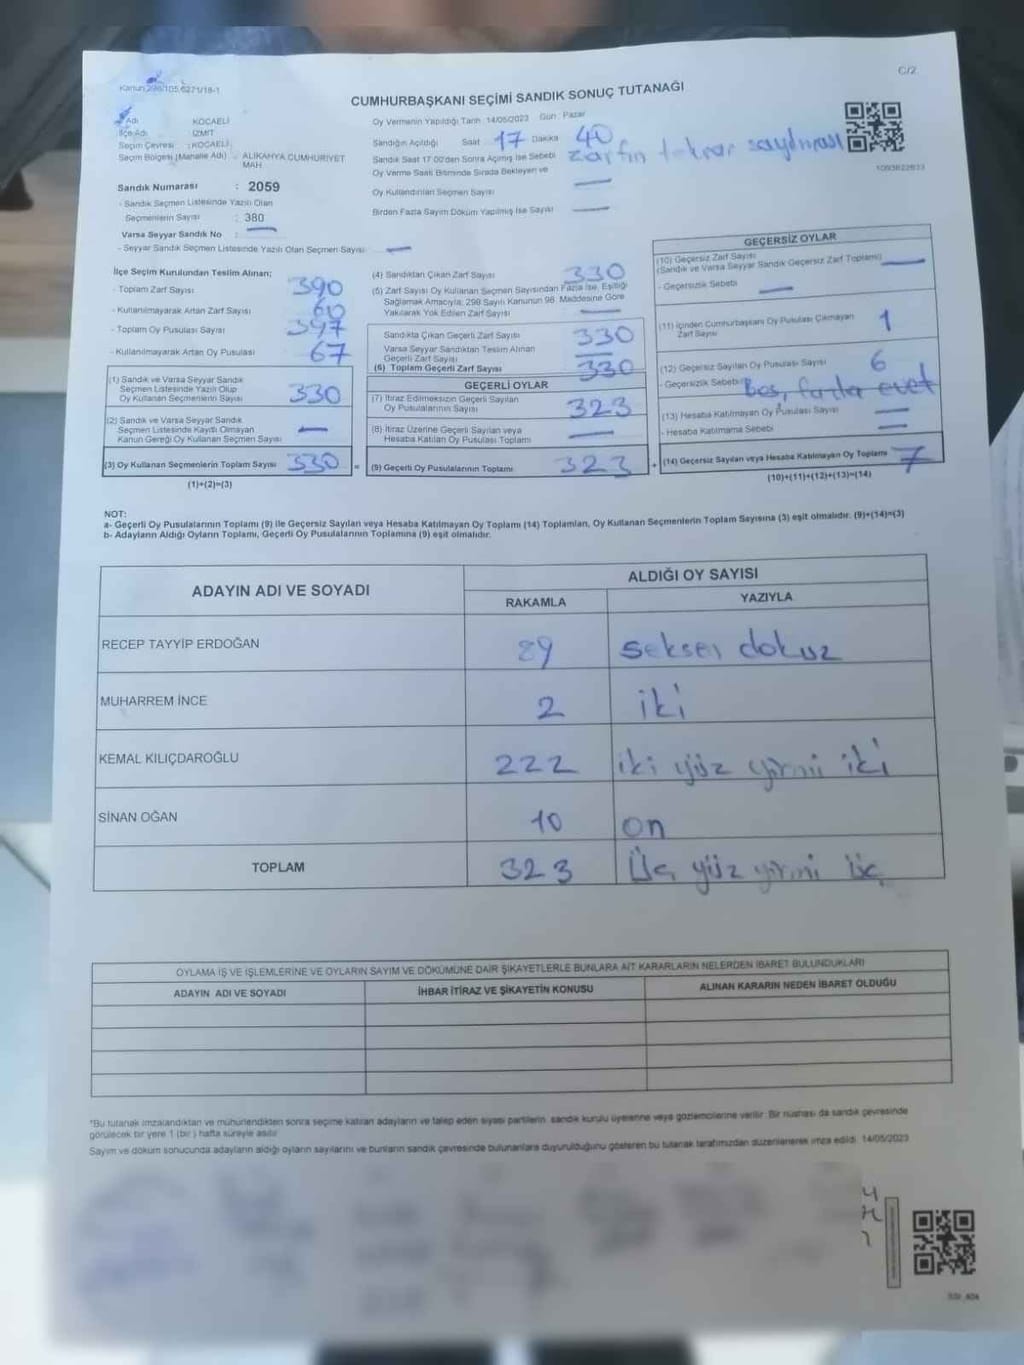 C/2
Kanun 298/105,6271/18-1
CUMHURBAŞKANI SEÇİMİ SANDIK SONUÇ TUTANAĞI
Adı KOCAELİ
İlçe Adı İZMİT
Seçim Çevresi : KOCAELİ
Seçim Bölgesi (Mahalle Adı) : ALİKAHYA CUMHURİYET MAH
Sandık Numarası : 2059
- Sandık Seçmen Listesinde Yazılı Olan
Seçmenlerin Sayısı : 380
Varsa Seyyar Sandık No : —
- Seyyar Sandık Seçmen Listesinde Yazılı Olan Seçmen Sayısı —
Oy Vermenin Yapıldığı Tarih 14/05/2023 Gün : Pazar
Sandığın Açıldığı Saat 17 Dakika 40
Sandık Saat 17:00'dan Sonra Açılmış İse Sebebi zarfın tekrar sayılması
Oy Verme Saati Bitiminde Sırada Bekleyen ve
Oy Kullandırılan Seçmen Sayısı —
Birden Fazla Sayım Döküm Yapılmış İse Sayısı —
İlçe Seçim Kurulundan Teslim Alınan;
- Toplam Zarf Sayısı 390
- Kullanılmayarak Artan Zarf Sayısı 60
- Toplam Oy Pusulası Sayısı 397
- Kullanılmayarak Artan Oy Pusulası 67
(1) Sandık ve Varsa Seyyar Sandık
Seçmen Listesinde Yazılı Olup
Oy Kullanan Seçmenlerin Sayısı 330
(2) Sandık ve Varsa Seyyar Sandık
Seçmen Listesinde Kaydı Olmayan
Kanun Gereği Oy Kullanan Seçmen Sayısı —
(3) Oy Kullanan Seçmenlerin Toplam Sayısı 330 =
(1)+(2)=(3)
(4) Sandıktan Çıkan Zarf Sayısı 330
(5) Zarf Sayısı Oy Kullanan Seçmen Sayısından Fazla İse, Eşitliği
Sağlamak Amacıyla, 298 Sayılı Kanunun 98. Maddesine Göre
Yakılarak Yok Edilen Zarf Sayısı —
Sandıkta Çıkan Geçerli Zarf Sayısı 330
Varsa Seyyar Sandıktan Teslim Alınan
Geçerli Zarf Sayısı —
(6) Toplam Geçerli Zarf Sayısı 330
GEÇERLİ OYLAR
(7) İtiraz Edilmeksizin Geçerli Sayılan
Oy Pusulalarının Sayısı 323
(8) İtiraz Üzerine Geçerli Sayılan veya
Hesaba Katılan Oy Pusulası Toplamı —
(9) Geçerli Oy Pusulalarının Toplamı 323 +
GEÇERSİZ OYLAR
(10) Geçersiz Zarf Sayısı
(Sandık ve Varsa Seyyar Sandık Geçersiz Zarf Toplamı) —
- Geçersizlik Sebebi —
(11) İçinden Cumhurbaşkanı Oy Pusulası Çıkmayan
Zarf Sayısı 1
(12) Geçersiz Sayılan Oy Pusulası Sayısı 6
- Geçersizlik Sebebi Boş, fazla evet
(13) Hesaba Katılmayan Oy Pusulası Sayısı —
- Hesaba Katılmama Sebebi —
(14) Geçersiz Sayılan veya Hesaba Katılmayan Oy Toplamı 7
(10)+(11)+(12)+(13)=(14)
NOT:
a- Geçerli Oy Pusulalarının Toplamı (9) ile Geçersiz Sayılan veya Hesaba Katılmayan Oy Toplamı (14) Toplamları, Oy Kullanan Seçmenlerin Toplam Sayısına (3) eşit olmalıdır. (9)+(14)=(3)
b- Adayların Aldığı Oyların Toplamı, Geçerli Oy Pusulalarının Toplamına (9) eşit olmalıdır.
ADAYIN ADI VE SOYADI ALDIĞI OY SAYISI
RAKAMLA YAZIYLA
RECEP TAYYİP ERDOĞAN 89 seksen dokuz
MUHARREM İNCE 2 iki
KEMAL KILIÇDAROĞLU 222 iki yüz yirmi iki
SİNAN OĞAN 10 on
TOPLAM 323 Üç yüz yirmi üç
OYLAMA İŞ VE İŞLEMLERİNE VE OYLARIN SAYIM VE DÖKÜMÜNE DAİR ŞİKAYETLERLE BUNLARA AİT KARARLARIN NELERDEN İBARET BULUNDUKLARI
ADAYIN ADI VE SOYADI İHBAR İTİRAZ VE ŞİKAYETİN KONUSU ALINAN KARARIN NEDEN İBARET OLDUĞU
*Bu tutanak imzalandıktan ve mühürlendikten sonra seçime katılan adayların ve talep eden siyasi partilerin, sandık kurulu üyelerine veya gözlemcilerine verilir. Bir nüshası da sandık çevresinde
görülecek bir yere 1 (bir) hafta süreyle asılır.
Sayım ve döküm sonucunda adayların aldığı oyların sayılarını ve bunların sandık çevresinde bulunanlara duyurulduğunu gösteren bu tutanak tarafımızdan düzenlenerek imza edildi. 14/05/2023